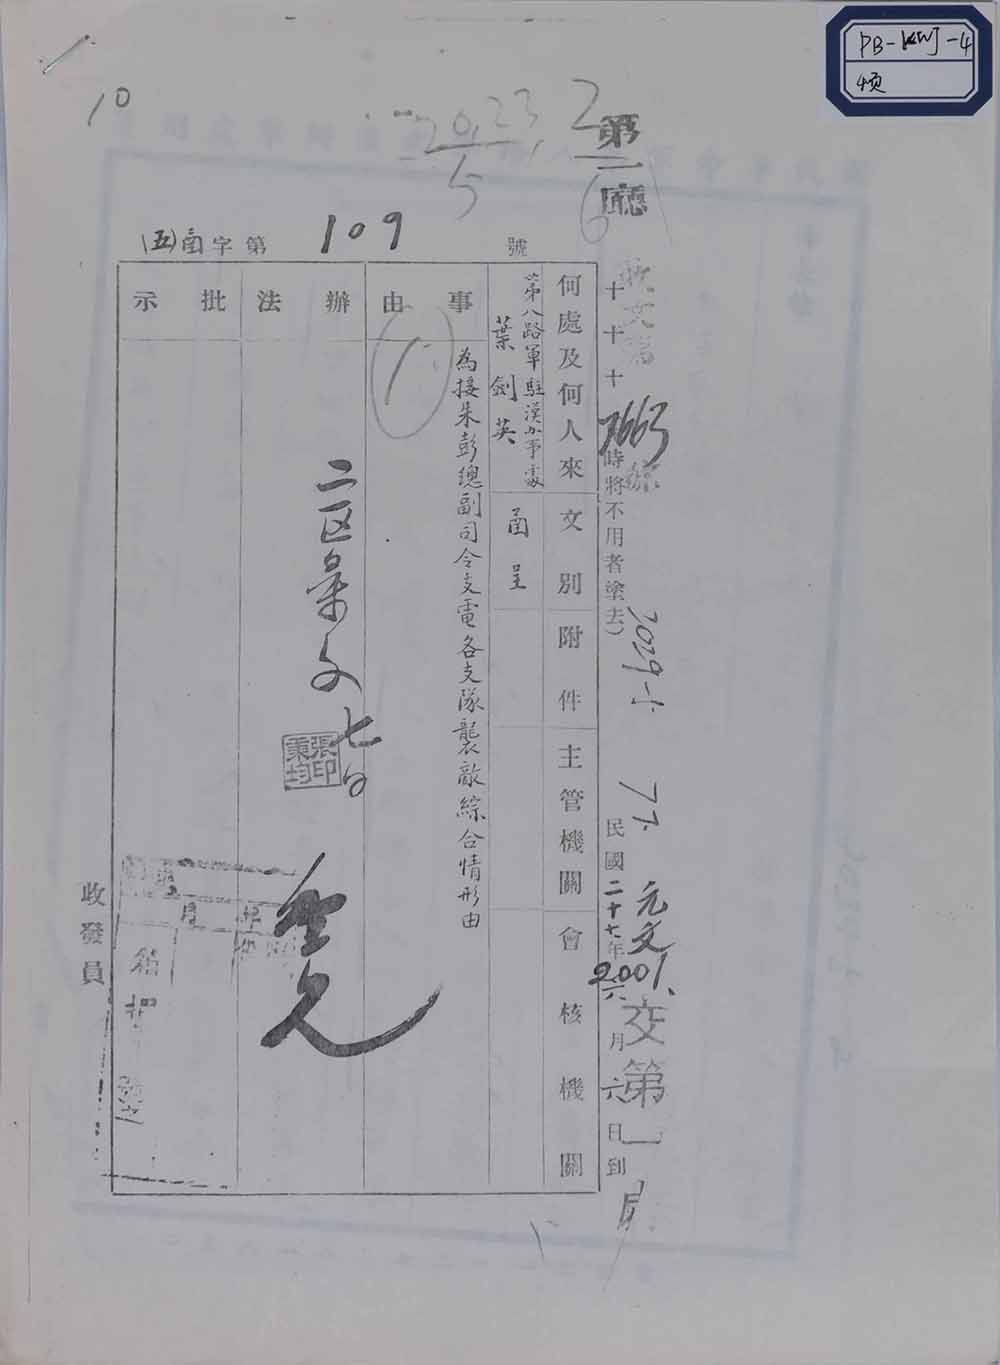 PB-KWJ-4
顷
10
20,23,2
5
6
第一廳
(五)函字第 109 號
收文第
7663
號
十十十
時將不用者塗去)
2029
77.
民國二十七年六月六日到
元文
2001.
交第一
何處及何人來文別附件主管機關會核機關
第八路軍駐漢办事處
葉劍英
函呈
事由
為接朱彭總副司令支電各支隊襲敵綜合情形由
1
辦法
二区彙文
七日
張秉均印
批示
收發員
月